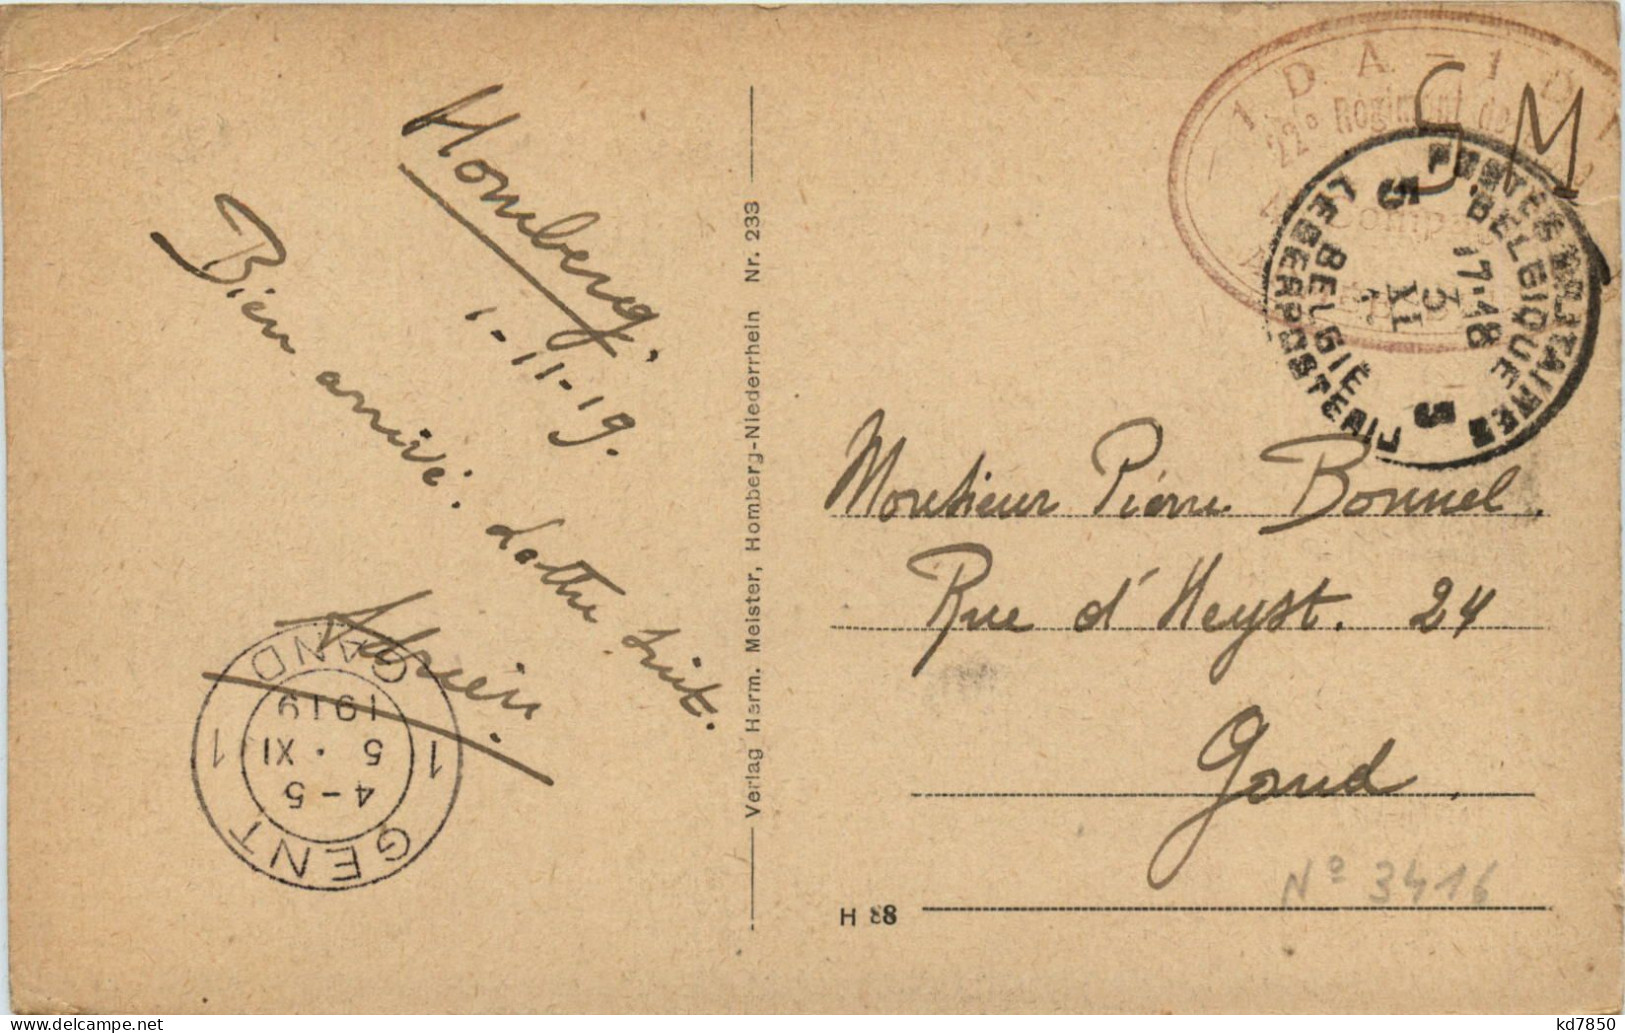 Homberg.
1-11-19.
Bien arrivé. Lettre suit.
Adrien.
GAND
1919
5 · XI
4-5
1 1
GENT
Verlag Herm. Meister, Homberg-Niederrhein Nr. 233
1 D A - 1
22e Régiment de
S M
POSTES MILITAIRES
BELGIQUE
17-18
3
XI
5 5
BELGIË
LEGERPOSTERIJ
Monsieur Pierre Bonnel.
Rue d'Heyst. 24
Gand.
No 3416
H 88
kd7850